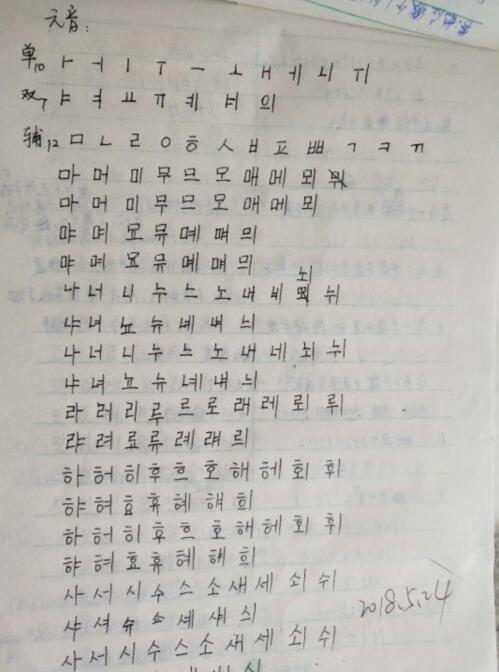 元音:
单10 ㅏ ㅓ ㅣ ㅜ ㅡ ㅗ ㅐ ㅔ ㅚ ㅟ
双7 ㅑ ㅕ ㅛ ㅠ ㅖ ㅒ ㅢ
辅12 ㅁ ㄴ ㄹ ㅇ ㅎ ㅅ ㅂ ㅍ ㅃ ㄱ ㅋ ㄲ
마 머 미 무 므 모 매 메 뫼
마 머 미 무 므 모 매 메 뫼
먀 며 묘 뮤 몌 먜 믜
먀 며 묘 뮤 몌 믜
나 너 니 누 느 노 내 네 뇌 뉘
냐 녀 뇨 뉴 녜 냬 늬
나 너 니 누 느 노 내 네 뇌 뉘
냐 녀 뇨 뉴 녜 냬 늬
라 러 리 루 르 로 래 레 뢰 뤼
랴 려 료 류 례 럐 릐
하 허 히 후 흐 호 해 헤 회 휘
햐 혀 효 휴 혜 해 희
하 허 히 후 흐 호 해 헤 회 휘
햐 혀 효 휴 혜 해 희
사 서 시 수 스 소 새 세 쇠 쉬
2018.5.24
샤 셔 슈 쇼 셰 섀 싀
사 서 시 수 스 소 새 세 쇠 쉬